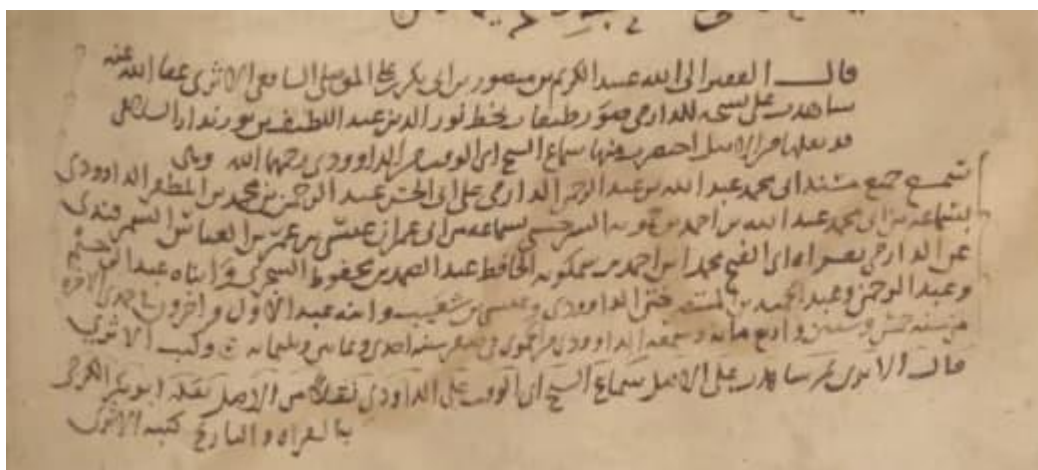 قال الفقير الى الله عبد الكريم بن منصور بن ابى بكر بن على الموصلى الشافعى الاثرى عفا الله عنه
شاهدت على نسخه للدارمى صور طبقات بخط نور الدين عبد اللطيف بن بورندار السلامى
قد نقلها من الاصل اختصرت منها سماع الشيخ ابى الوقت من الداوودى رحمهما الله وهى
سمع جميع مسند ابى محمد عبد الله بن عبد الرحمن الدارمى على ابى الحسن عبد الرحمن بن محمد بن المظفر الداوودى
بسماعه من ابى محمد عبد الله بن احمد بن حمويه السرخسى بسماعه من ابى عمران عيسى بن عمر بن العباس السمرقندى
عن الدارمى بقراءه ابى الفتح محمد بن احمد بن سمكويه الحافظ عبد الصمد بن محفوظ السجزى وابناه عبد
وعبد الرحمن وعبد الحميد بن ختن الداوودى وعيسى بن شعيب وابنه عبد الاول واخرون
من سنه خمس وستين واربع مايه وسمعه الداوودى من الحموى فى صفر سنه احدى وثمانين وثلثمايه وكتب الاثرى
قال الاثرى ثم شاهدت على الاصل سماع الشيخ ابى الوقت على الداودى نقلا من الاصل نقله ابو بكر
بالقراه والتاريخ كتبه الاثرى